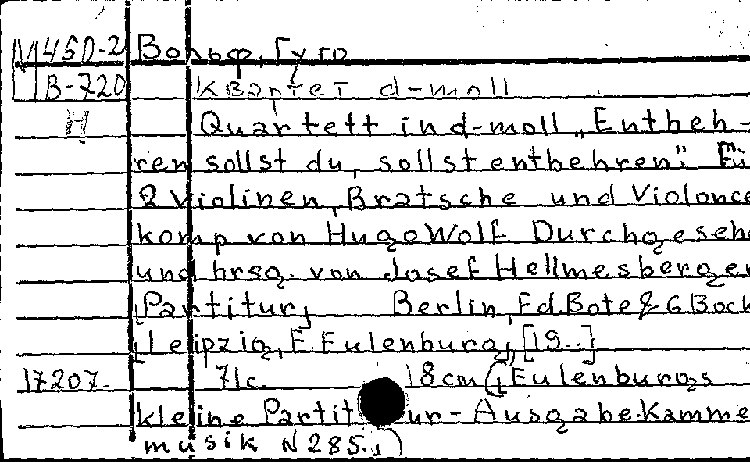 М450-2 Вольф, Гуго
В-720 Квартет d-moll
Н Quartett in d-moll „Entbeh-
ren sollst du, sollst entbehren". Fü
2 Violinen, Bratsche und Violonce
komp von Hugo Wolf. Durchgeseh
und hrsg. von Josef Hellmesberger
[Partitur] Berlin, Ed. Bote & G Bock
[Leipzig, E Eulenburg], [19..]
17207. 71c. 18cm (Eulenburgs
kleine Partitur-Ausgabe. Kamme
musik N 285.)